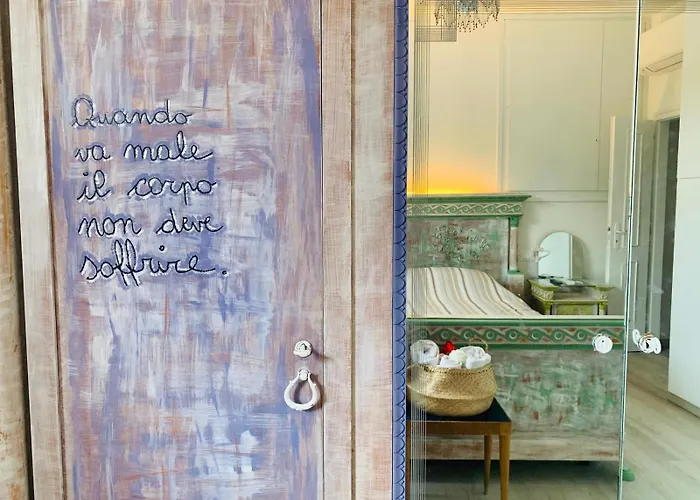 Quando
va male
il corpo
non deve
soffrire.